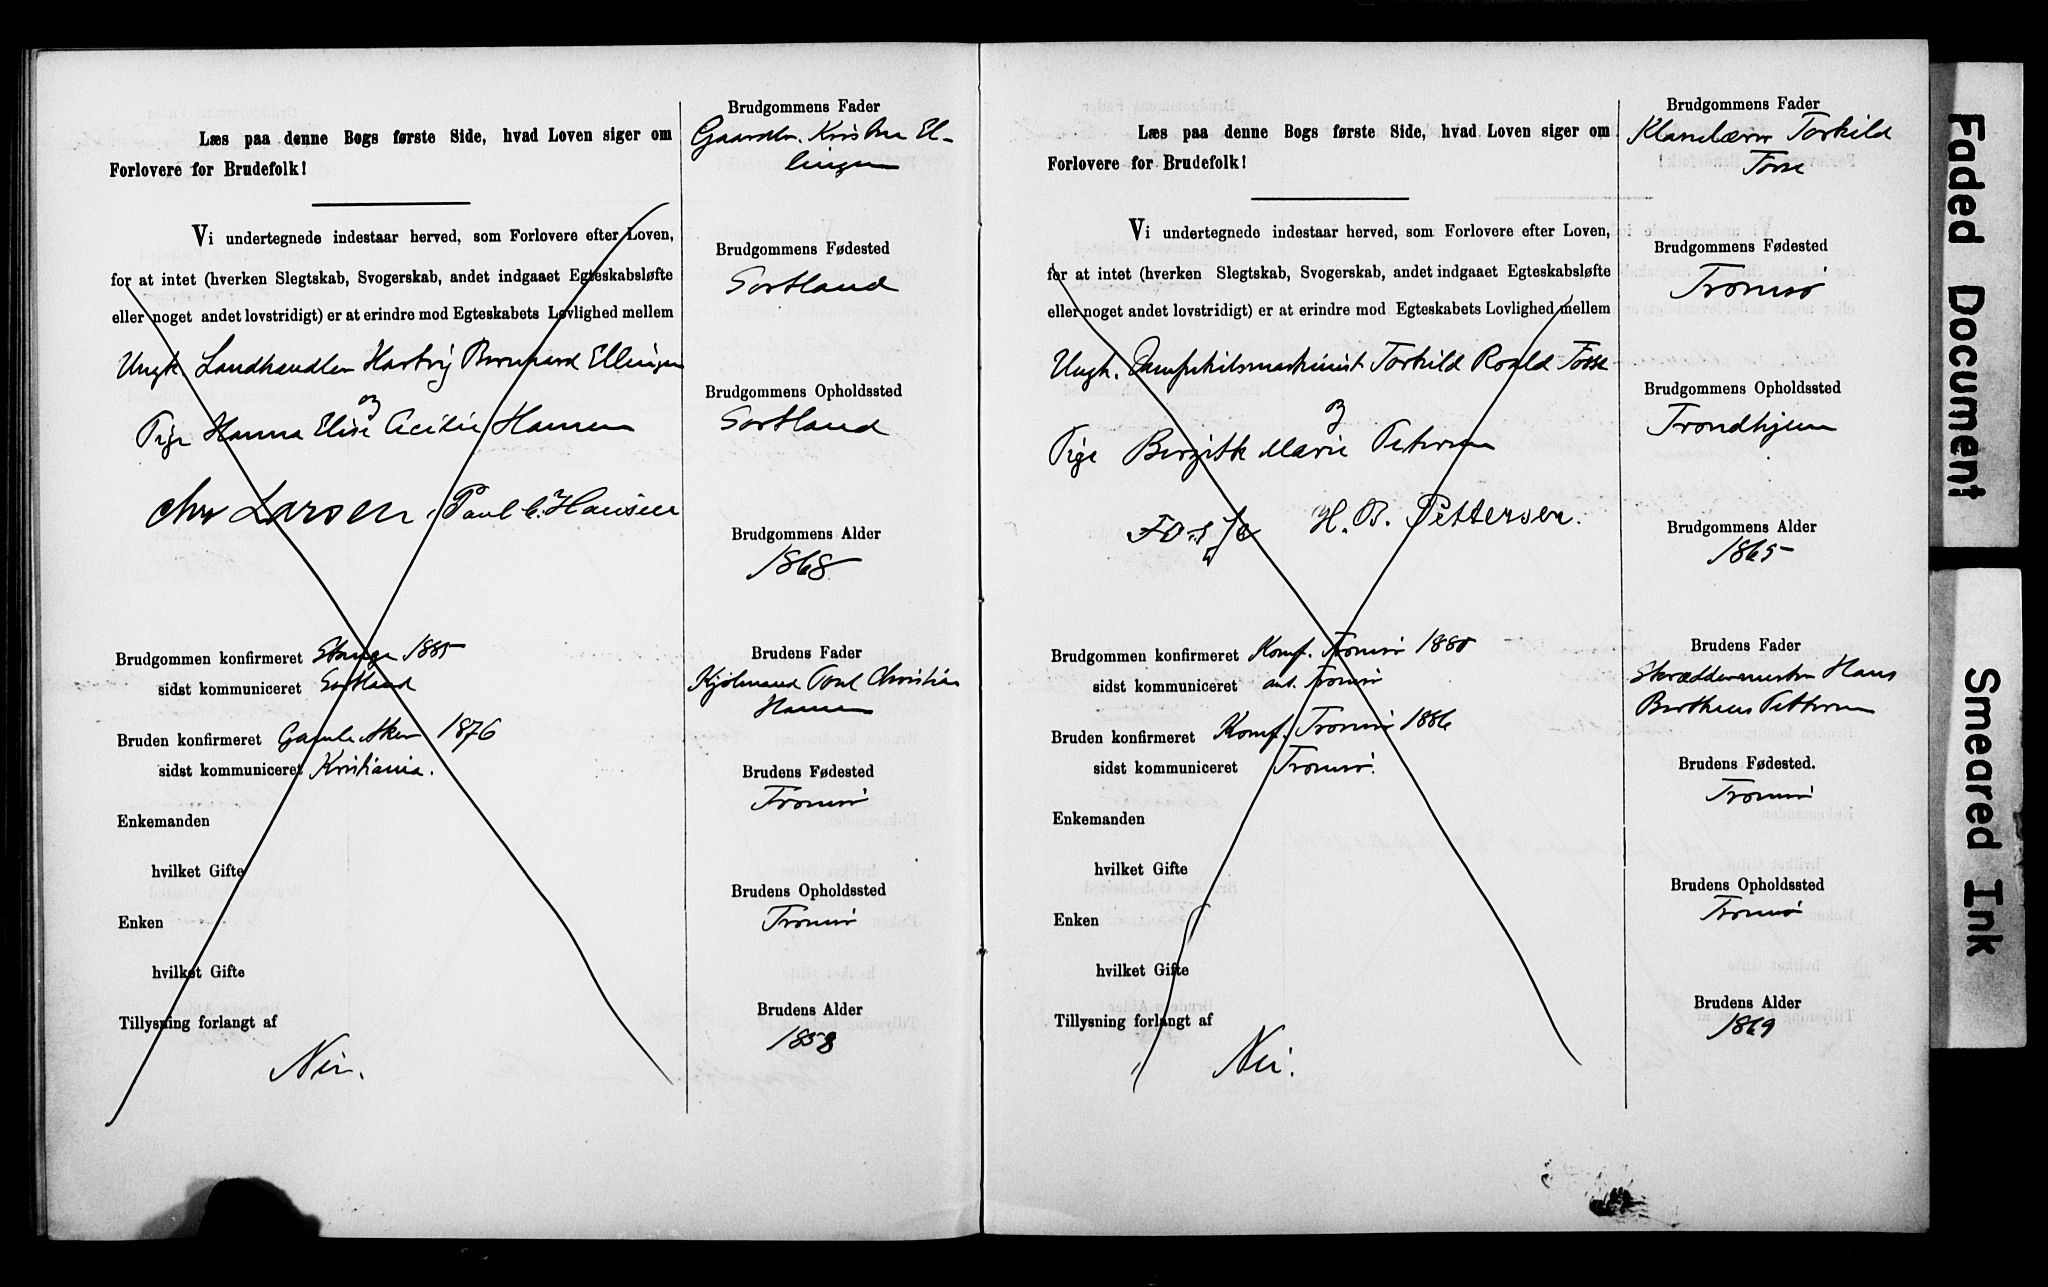 Læs paa denne Bogs første Side, hvad Loven siger om
Forlovere for Brudefolk!
Vi undertegnede indestaar herved, som Forlovere efter Loven,
for at intet (hverken Slegtskab, Svogerskab, andet indgaaet Egteskabsløfte
eller noget andet lovstridigt) er at erindre mod Egteskabets Lovlighed mellem
Ungk. Landhandler Hartvig Bernhard Ellingsen
og
Pige Hanna Elise Cecilie Hansen
Chr Larsen. Paul C. Hansen
Brudgommen konfirmeret 1885
sidst kommuniceret Sortland
Bruden konfirmeret Gamle Aker 1876
sidst kommuniceret Kristiania.
Enkemanden
hvilket Gifte
Enken
hvilket Gifte
Tillysning forlangt af
Nei.
Brudgommens Fader
Gaardbr. El-
lingsen
Brudgommens Fødested
Sortland
Brudgommens Opholdssted
Sortland
Brudgommens Alder
1868
Brudens Fader
Kjølmand Paul Christian
Hansen
Brudens Fødested
Tromsø
Brudens Opholdssted
Tromsø
Brudens Alder
1858
Læs paa denne Bogs første Side, hvad Loven siger om
Forlovere for Brudefolk!
Vi undertegnede indestaar herved, som Forlovere efter Loven,
for at intet (hverken Slegtskab, Svogerskab, andet indgaaet Egteskabsløfte
eller noget andet lovstridigt) er at erindre mod Egteskabets Lovlighed mellem
Ungk. Dampskibsmaskinist Torkild Roald Fosse
og
Pige Bergithe Marie Petersen
Fosse H. B. Pettersen.
Brudgommen konfirmeret Konf. Tromsø 1880
sidst kommuniceret ant. Tromsø
Bruden konfirmeret Konf. Tromsø 1886
sidst kommuniceret Tromsø.
Enkemanden
hvilket Gifte
Enken
hvilket Gifte
Tillysning forlangt af
Nei.
Brudgommens Fader
Torkild
Fosse
Brudgommens Fødested
Tromsø
Brudgommens Opholdssted
Trondhjem
Brudgommens Alder
1865
Brudens Fader
Skræddermester Hans
Pettersen
Brudens Fødested.
Tromsø
Brudens Opholdssted
Tromsø
Brudens Alder
1869
Faded Document
Smeared Ink